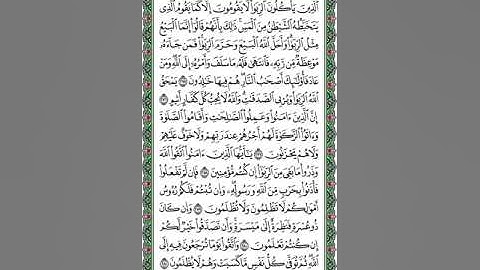 الَّذِينَ يَأْكُلُونَ الرِّبَوٰا۟ لَا يَقُومُونَ إِلَّا كَمَا يَقُومُ الَّذِى
يَتَخَبَّطُهُ الشَّيْطَٰنُ مِنَ الْمَسِّ ذَٰلِكَ بِأَنَّهُمْ قَالُوٓا۟ إِنَّمَا الْبَيْعُ
مِثْلُ الرِّبَوٰا۟ وَأَحَلَّ اللَّهُ الْبَيْعَ وَحَرَّمَ الرِّبَوٰا۟ فَمَن جَآءَهُۥ
مَوْعِظَةٌ مِّن رَّبِّهِۦ فَانتَهَىٰ فَلَهُۥ مَا سَلَفَ وَأَمْرُهُۥٓ إِلَى اللَّهِ وَمَنْ
عَادَ فَأُو۟لَٰٓئِكَ أَصْحَٰبُ النَّارِ هُمْ فِيهَا خَٰلِدُونَ ﴿٢٧٥﴾ يَمْحَقُ
اللَّهُ الرِّبَوٰا۟ وَيُرْبِى الصَّدَقَٰتِ وَاللَّهُ لَا يُحِبُّ كُلَّ كَفَّارٍ أَثِيمٍ ﴿٢٧٦﴾
إِنَّ الَّذِينَ ءَامَنُوا۟ وَعَمِلُوا۟ الصَّٰلِحَٰتِ وَأَقَامُوا۟ الصَّلَوٰةَ
وَءَاتَوُا۟ الزَّكَوٰةَ لَهُمْ أَجْرُهُمْ عِندَ رَبِّهِمْ وَلَا خَوْفٌ عَلَيْهِمْ
وَلَا هُمْ يَحْزَنُونَ ﴿٢٧٧﴾ يَٰٓأَيُّهَا الَّذِينَ ءَامَنُوا۟ اتَّقُوا۟ اللَّهَ
وَذَرُوا۟ مَا بَقِىَ مِنَ الرِّبَوٰٓا۟ إِن كُنتُم مُّؤْمِنِينَ ﴿٢٧٨﴾ فَإِن لَّمْ تَفْعَلُوا۟
فَأْذَنُوا۟ بِحَرْبٍ مِّنَ اللَّهِ وَرَسُولِهِۦ وَإِن تُبْتُمْ فَلَكُمْ رُءُوسُ
أَمْوَٰلِكُمْ لَا تَظْلِمُونَ وَلَا تُظْلَمُونَ ﴿٢٧٩﴾ وَإِن كَانَ
ذُو عُسْرَةٍ فَنَظِرَةٌ إِلَىٰ مَيْسَرَةٍ وَأَن تَصَدَّقُوا۟ خَيْرٌ لَّكُمْ
إِن كُنتُمْ تَعْلَمُونَ ﴿٢٨٠﴾ وَاتَّقُوا۟ يَوْمًا تُرْجَعُونَ فِيهِ إِلَى
اللَّهِ ثُمَّ تُوَفَّىٰ كُلُّ نَفْسٍ مَّا كَسَبَتْ وَهُمْ لَا يُظْلَمُونَ ﴿٢٨١﴾